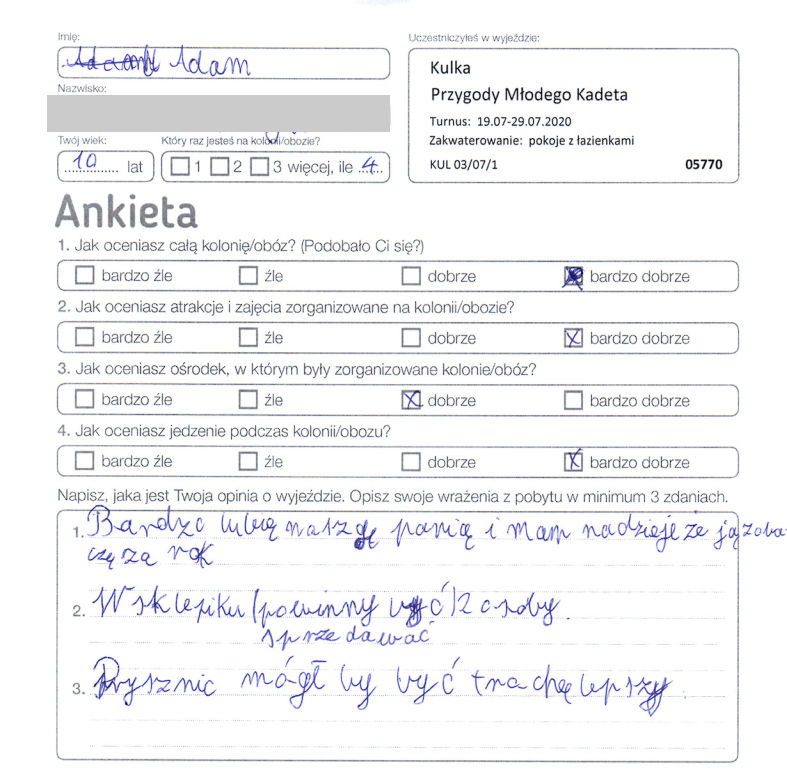 Imię:
Adam
Uczestniczyłeś w wyjeździe:
Kulka
Przygody Młodego Kadeta
Turnus: 19.07-29.07.2020
Zakwaterowanie: pokoje z łazienkami
KUL 03/07/1 05770
Nazwisko:
Twój wiek: Który raz jesteś na kolonii/obozie?
10 lat 1 2 3 więcej, ile 4
Ankieta
1. Jak oceniasz całą kolonię/obóz? (Podobało Ci się?)
bardzo źle źle dobrze bardzo dobrze
2. Jak oceniasz atrakcje i zajęcia zorganizowane na kolonii/obozie?
bardzo źle źle dobrze bardzo dobrze
3. Jak oceniasz ośrodek, w którym były zorganizowane kolonie/obóz?
bardzo źle źle dobrze bardzo dobrze
4. Jak oceniasz jedzenie podczas kolonii/obozu?
bardzo źle źle dobrze bardzo dobrze
Napisz, jaka jest Twoja opinia o wyjeździe. Opisz swoje wrażenia z pobytu w minimum 3 zdaniach.
1. Bardzo lubię naszą panią i mam nadzieje że ją zoba
czę za rok
2. W sklepiku (powinny być) 2 osoby.
sprzedawać
3. Prysznic mógł by być trochę lepszy.